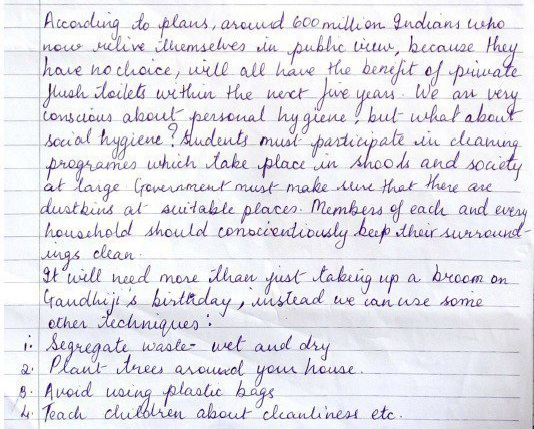 According to plans, around 600 million Indians who
now relive themselves in public view, because they
have no choice, will all have the benefit of private
flush toilets within the next five years. We are very
conscious about personal hygiene, but what about
social hygiene? Students must participate in cleaning
programes which take place in shools and society
at large Government must make sure that there are
dustbins at suitable places. Members of each and every
household should conscientiously keep their surround-
ings clean.
It will need more than just taking up a broom on
Gandhiji's birthday, instead we can use some
other techniques:
1. Segregate waste- wet and dry
2. Plant trees around your house.
3. Avoid using plastic bags
4. Teach children about cleanliness etc.